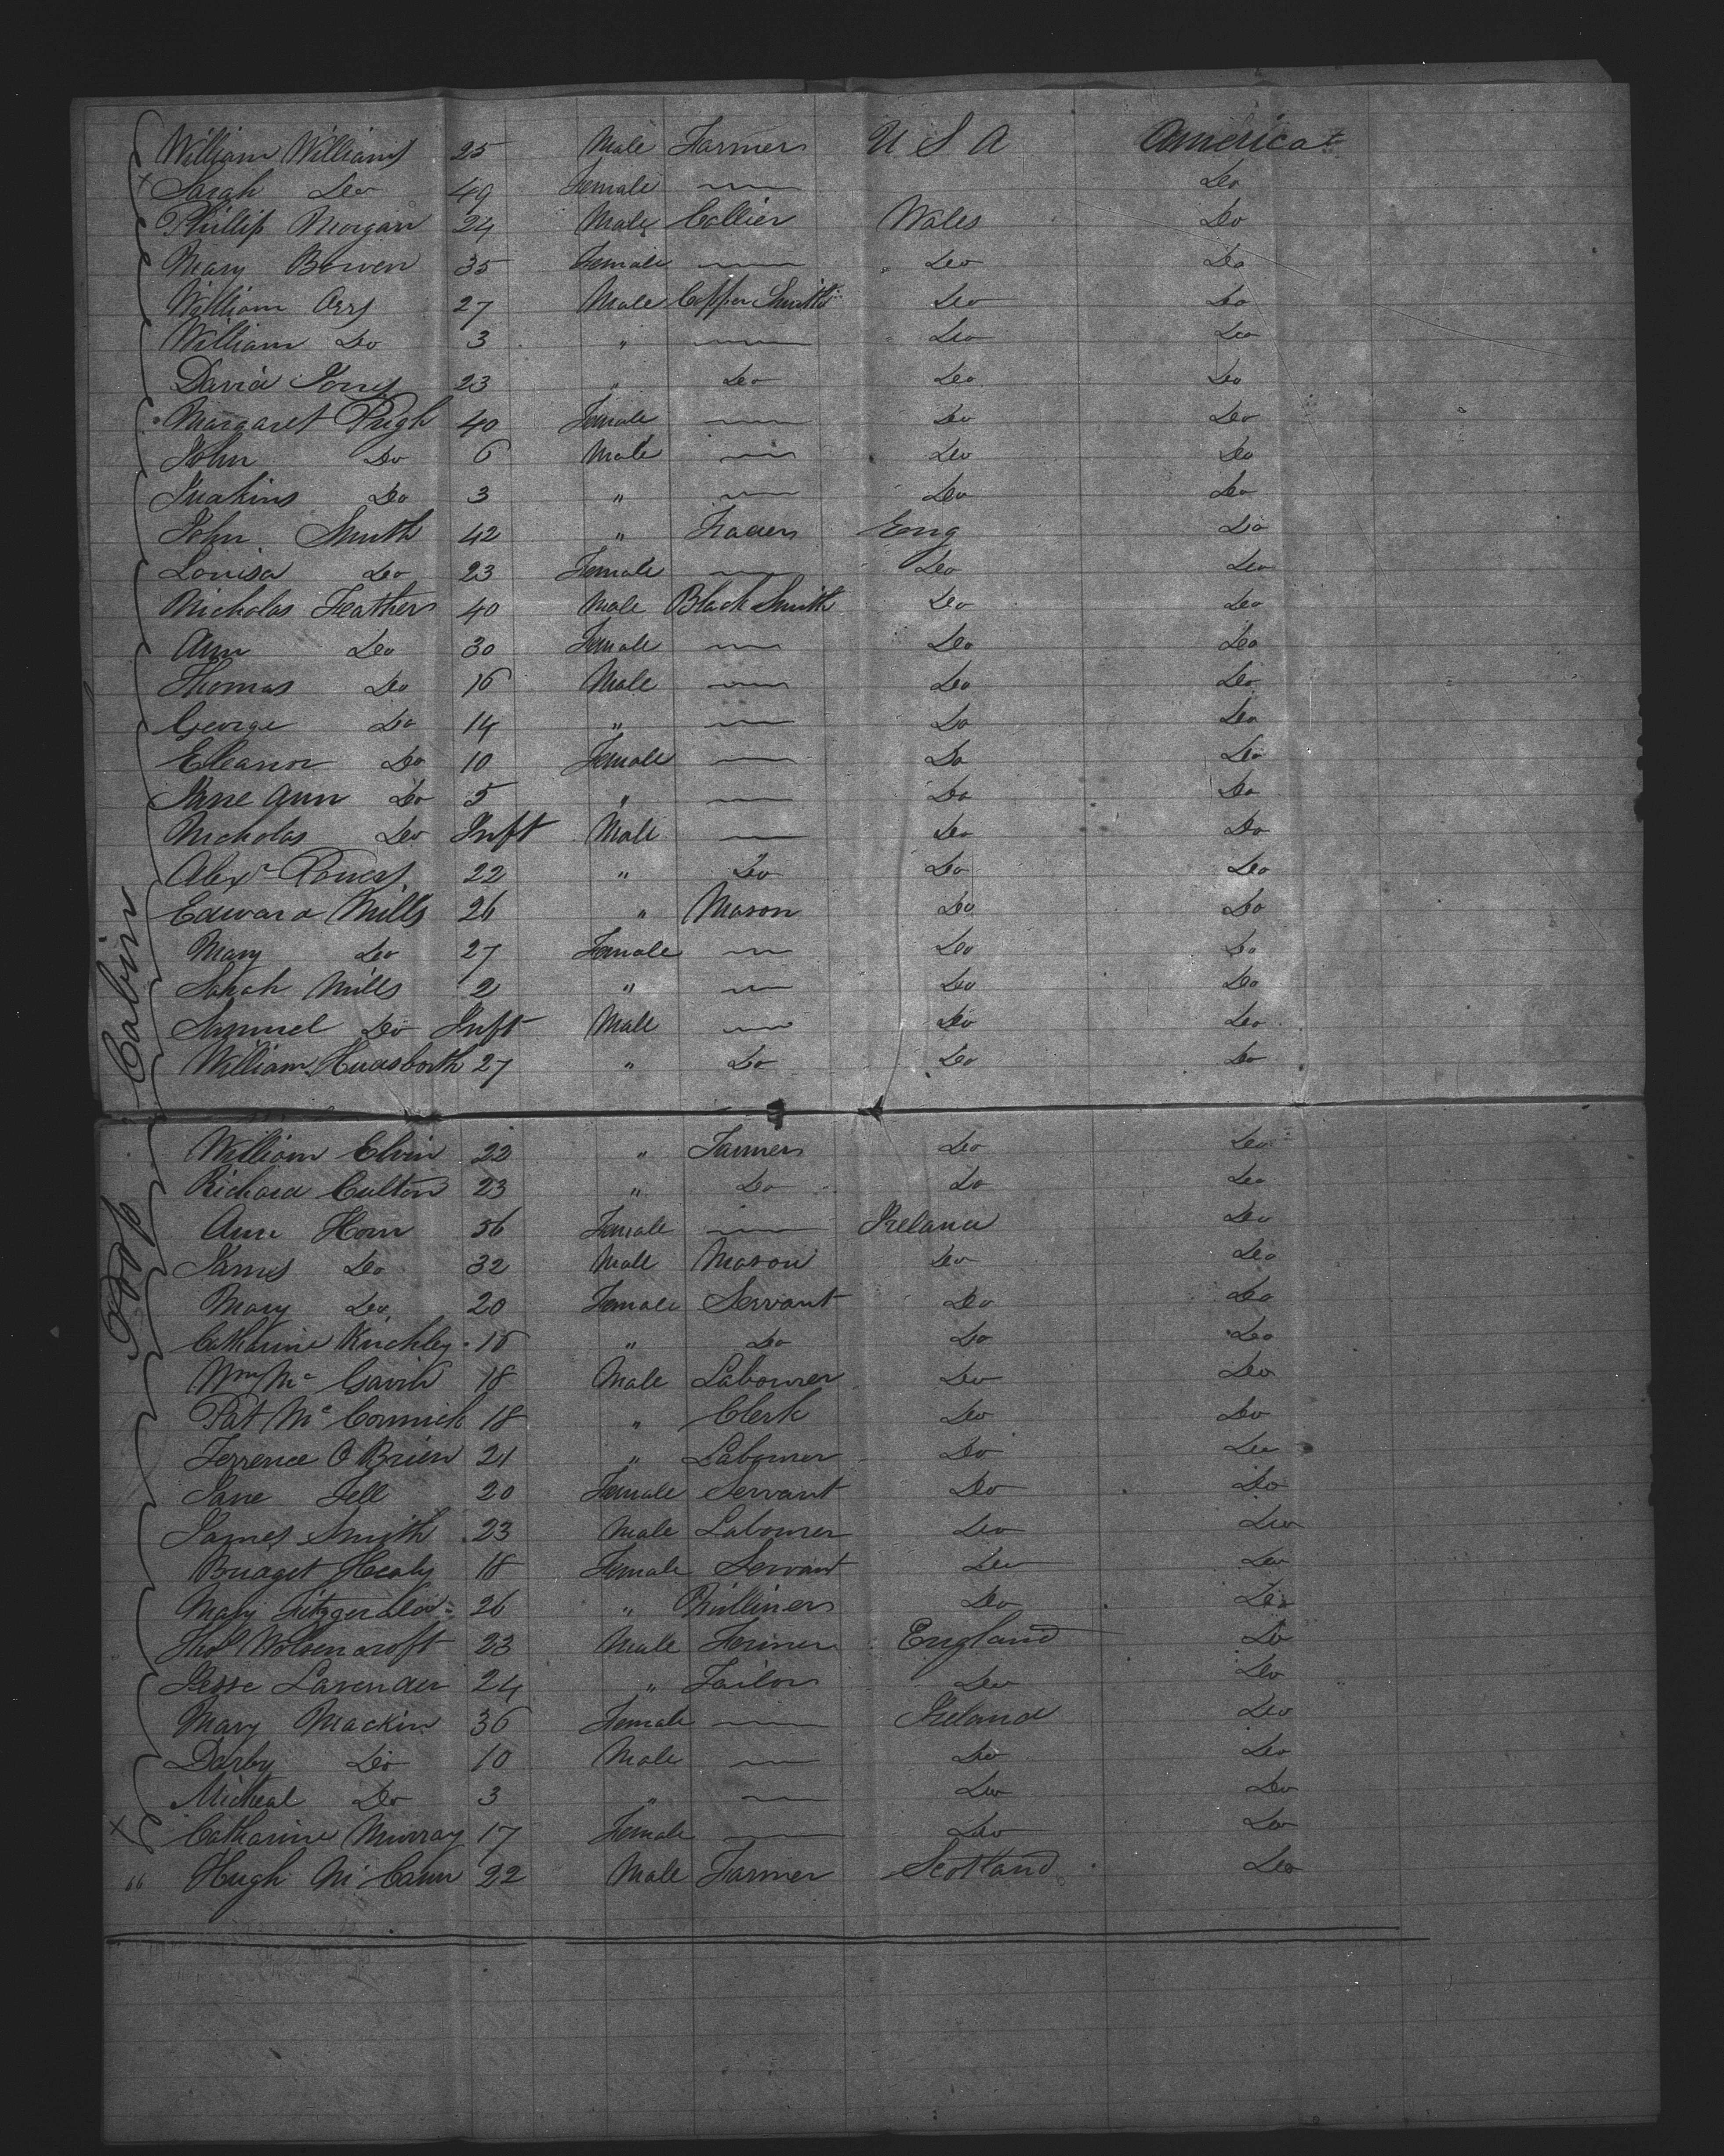 William Williams 25 Male Farmer U S A America
Sarah Do 49 Female Do
Phillip Morgan 24 Male Collier Wales Do
Mary Bowen 35 Female Do Do
William 27 Male Copper Smith Do Do
William Do 3 " Do Do
David Jones 23 " Do Do Do
Margaret Pugh 40 Female Do Do
John Do 6 Male Do Do
Do 3 " Do Do
John Smith 42 " Eng Do
Louisa Do 23 Female Do Do
Nicholas Feathers 40 Male Black Smith Do Do
Ann Do 30 Female Do Do
Thomas Do 16 Male Do Do
George Do 14 " Do Do
Eleanor Do 10 Female Do Do
Jane Ann Do 5 " Do Do
Nicholas Do Inft Male Do Do
Alexr 22 " Do Do Do
Edward Mills 26 " Mason Do Do
Mary Do 27 Female Do Do
Sarah Mills 2 " Do Do
Samuel Do Inft Male Do Do
William 27 " Do Do Do
Cabin
William Elvin 22 " Farmer Do Do
Richard Culton 23 " Do Do Do
Ann Horn 56 Female Ireland Do
James Do 32 Male Mason Do Do
Mary Do 20 Female Servant Do Do
Catharine 16 " Do Do Do
Wm Mc 18 Male Labourer Do Do
Pat Mc Cormick 18 " Clerk Do Do
Terrence O Brien 21 " Labourer Do Do
Jane Fell 20 Female Servant Do Do
James Smith 23 Male Labourer Do Do
Bridget Healy 18 Female Servant Do Do
Mary Fitzgerald 26 " Milliner Do Do
Thos 23 Male Farmer England Do
Jesse Lavender 24 " Tailor Do Do
Mary Mackin 36 Female Ireland Do
Darby Do 10 Male Do Do
Micheal Do 3 " Do Do
Catharine Murray 17 Female Do Do
" Hugh Mc Cann 22 Male Farmer Scotland Do